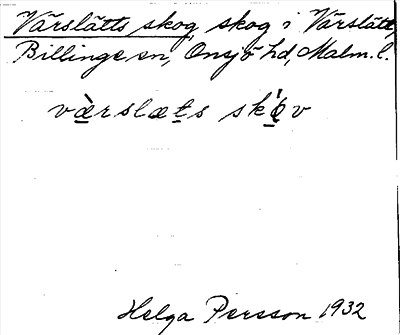 Vårslätts skog, skog i Vårslätt,
Billinge sn, Onsjö hd, Malm. l.
vàrslæts skǿv
Helga Persson 1932